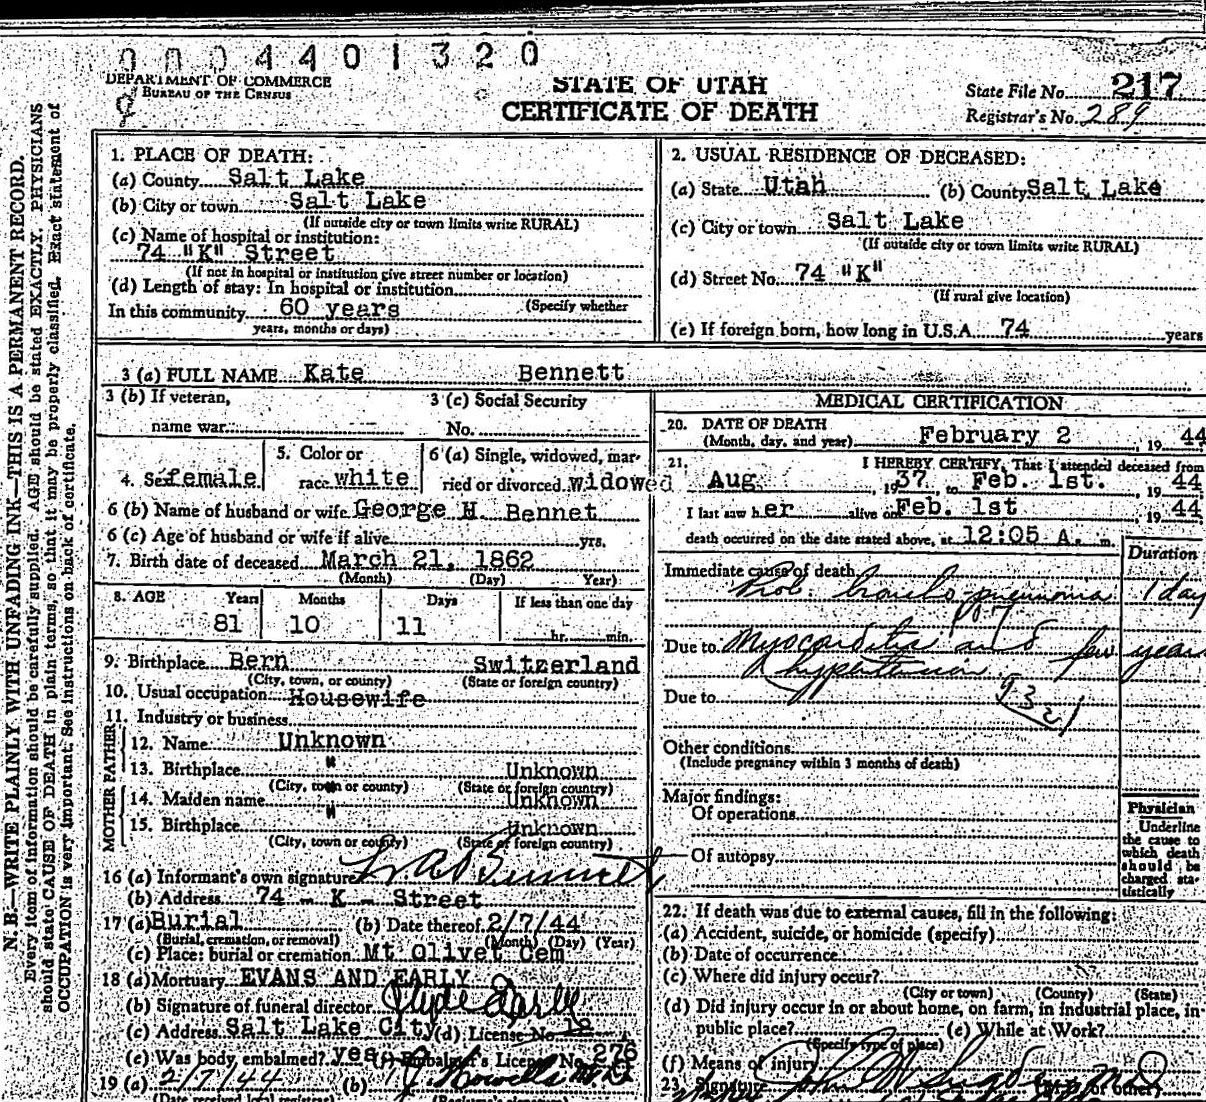 0004401320
DEPARTMENT OF COMMERCE
BUREAU OF THE CENSUS
STATE OF UTAH
CERTIFICATE OF DEATH
State File No. 217
Registrar's No. 289
N. B.—WRITE PLAINLY WITH UNFADING INK—THIS IS A PERMANENT RECORD.
Every item of information should be carefully supplied. AGE should be stated EXACTLY. PHYSICIANS
should state CAUSE OF DEATH in plain terms, so that it may be properly classified. Exact statement of
OCCUPATION is very important. See instructions on back of certificate.
1. PLACE OF DEATH:
(a) County Salt Lake
(b) City or town Salt Lake
(If outside city or town limits write RURAL)
(c) Name of hospital or institution:
74 "K" Street
(If not in hospital or institution give street number or location)
(d) Length of stay: In hospital or institution
(Specify whether
In this community 60 years
years, months or days)
2. USUAL RESIDENCE OF DECEASED:
(a) State Utah (b) County Salt Lake
(c) City or town Salt Lake
(If outside city or town limits write RURAL)
(d) Street No. 74 "K"
(If rural give location)
(e) If foreign born, how long in U.S.A. 74 years
3 (a) FULL NAME Kate Bennett
3 (b) If veteran,
name war
3 (c) Social Security
No.
4. Sex female
5. Color or
race white
6 (a) Single, widowed, mar-
ried or divorced widowed
6 (b) Name of husband or wife George H. Bennet
6 (c) Age of husband or wife if alive yrs.
7. Birth date of deceased March 21, 1862
(Month) (Day) Year)
8. AGE Years Months Days If less than one day
81 10 11 hr. min.
9. Birthplace Bern Switzerland
(City, town, or county) (State or foreign country)
10. Usual occupation Housewife
11. Industry or business
FATHER
12. Name Unknown
13. Birthplace " Unknown
(City, town or county) (State or foreign country)
MOTHER
14. Maiden name " Unknown
15. Birthplace Unknown
(City, town or county) (State or foreign country)
16 (a) Informant's own signature
(b) Address 74 - K - Street
17 (a) Burial (b) Date thereof 2/7/44
(Burial, cremation, or removal) (Month) (Day) (Year)
(c) Place: burial or cremation Mt Olivet Cem
18 (a) Mortuary EVANS AND EARLY
(b) Signature of funeral director Clyde Early
(c) Address Salt Lake City (d) License No. 12
(e) Was body embalmed? yes (f) Embalmer's License No. 276
19 (a) 2/7/44 (b)
(Date received local registrar)
MEDICAL CERTIFICATION
20. DATE OF DEATH
(Month, day, and year) February 2, 19 44
21. I HEREBY CERTIFY, That I attended deceased from
Aug. , 19 37 to Feb. 1st. , 19 44
I last saw her alive on Feb. 1st , 19 44
death occurred on the date stated above, at 12:05 A. m.
Duration
Immediate cause of death
Prob. broncho pneumonia 1 day
107
Due to myocarditis and few years
hypertension
Due to
Other conditions
(Include pregnancy within 3 months of death)
Major findings:
Of operations
Of autopsy
Physician
Underline
the cause to
which death
should be
charged sta-
tistically
22. If death was due to external causes, fill in the following:
(a) Accident, suicide, or homicide (specify)
(b) Date of occurrence
(c) Where did injury occur?
(City or town) (County) (State)
(d) Did injury occur in or about home, on farm, in industrial place, in
public place? (e) While at Work?
(Specify type of place)
(f) Means of injury
23. Signature (M.D. or other)